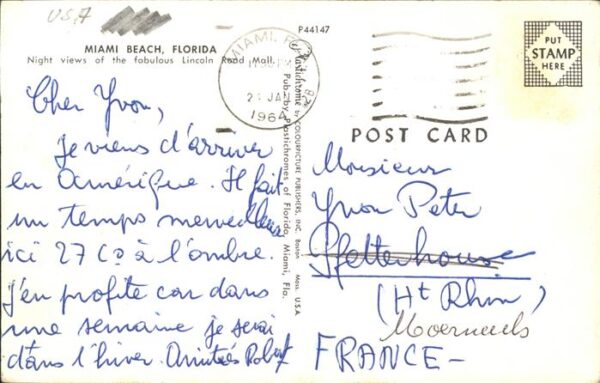 USA
P44147
MIAMI BEACH, FLORIDA
Night views of the fabulous Lincoln Road Mall.
MIAMI, F
JA
1964
PUT
STAMP
HERE
POST CARD
Plastichrome by COLOURPICTURE PUBLISHERS, INC. Boston Mass. U.S.A
Pub. by Plastichromes of Florida, Miami, Fla.
Cher Yvon,
Je viens d'arriver
en Amérique. Il fait
un temps merveilleux
ici 27 C° à l'ombre.
J'en profite car dans
une semaine je serai
dans l'hiver. Amitiés Robert
Monsieur
Yvon Peter
Pfetterhouse
(Ht Rhin)
FRANCE-